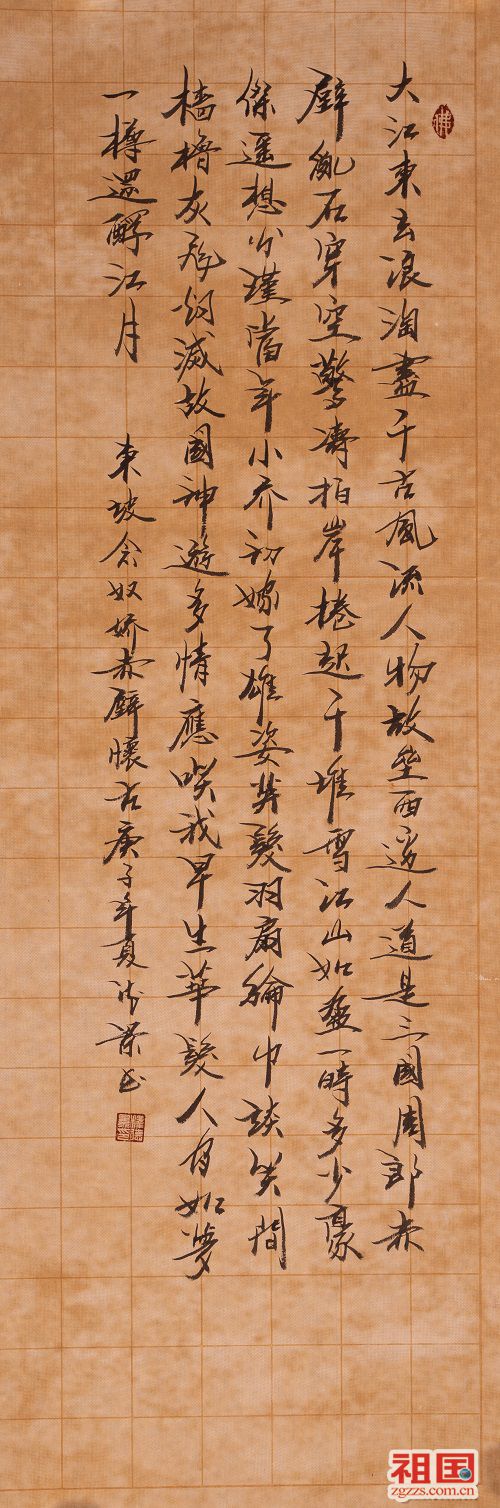 大江東去浪淘盡千古風流人物故壘西邊人道是三國周郎赤
壁亂石穿空驚濤拍岸捲起千堆雪江山如畫一時多少豪
傑遥想公瑾當年小乔初嫁了雄姿英髮羽扇綸巾談笑間
檣櫓灰飛烟滅故國神遊多情應笑我早生華髮人間如夢
一樽還酹江月 東坡念奴嬌赤壁懷古庚子年夏書
祖国
zgzzs.com.cn